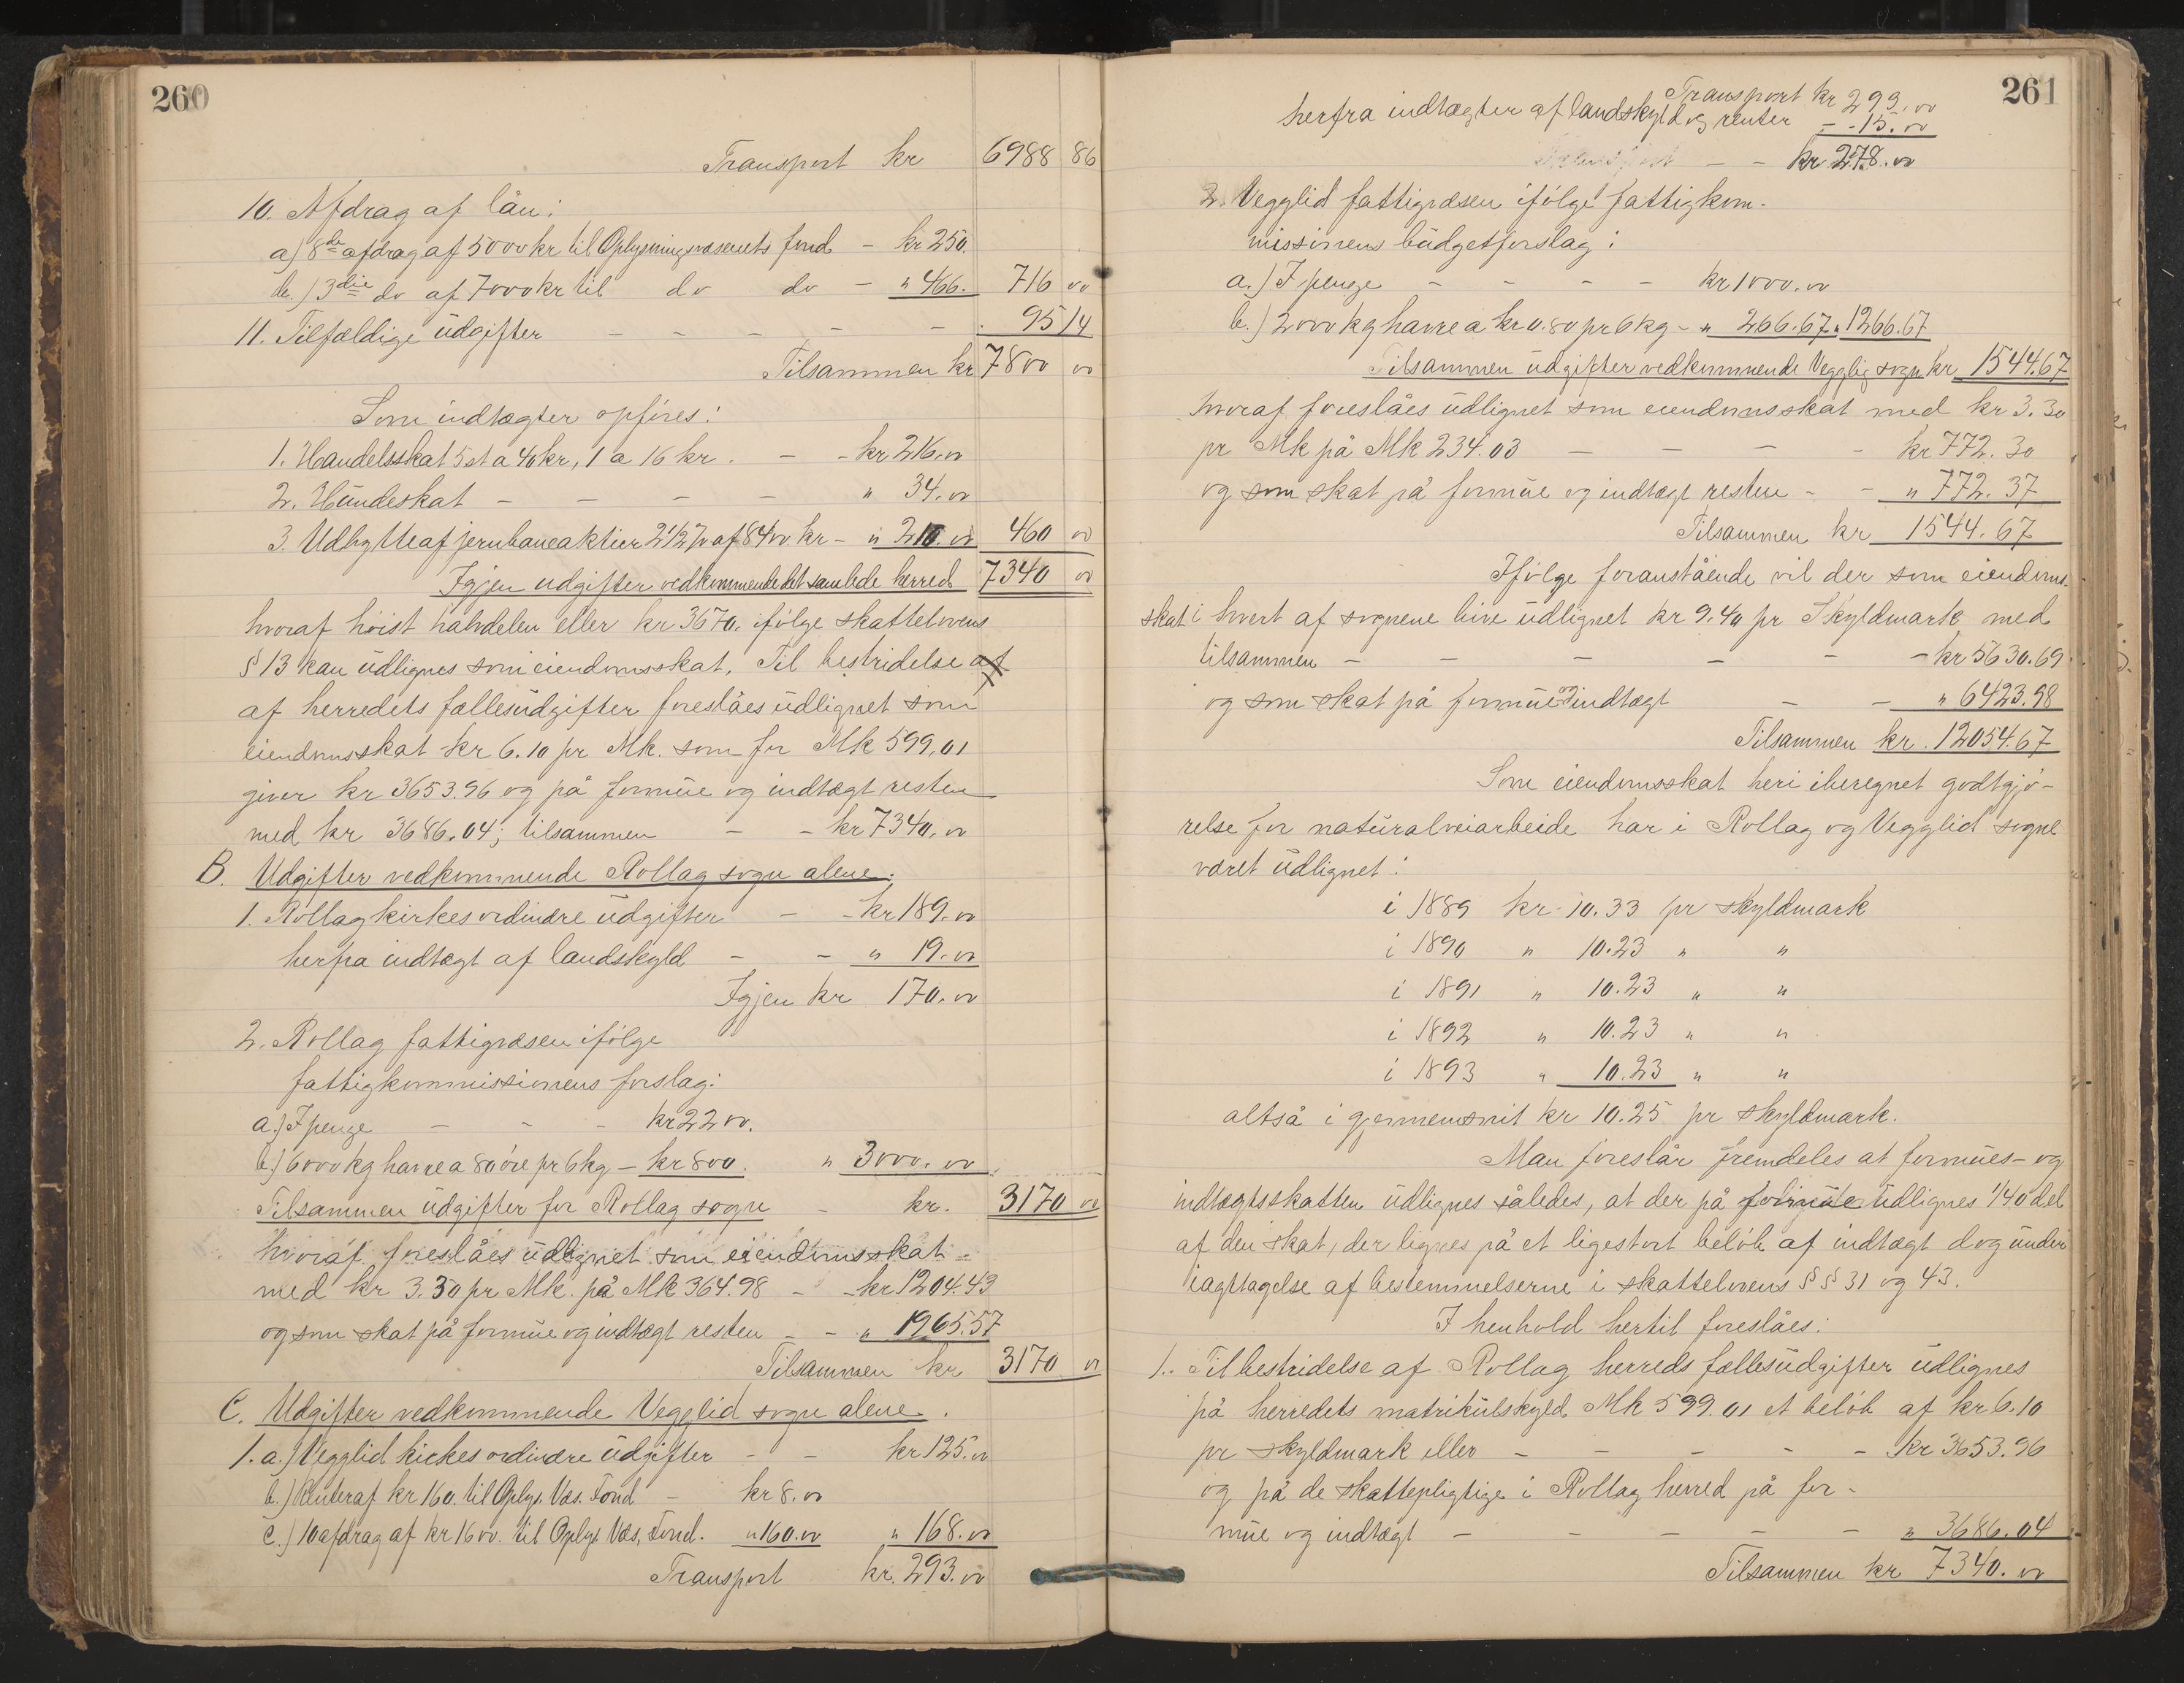 260
Transport kr 6988 86
10. Afdrag af lån:
a) 8de afdrag af 5000 kr til Oplysningsvæsenets fond - kr 250.
b.) 3die do af 7000 kr til do do - " 466. 716 00
11. Tilfældige udgifter - - - - - 95 14
Tilsammen kr 7800 00
Som indtægter opføres:
1. Handelsskat 5 st a 40 kr, 1 a 16 kr. - - kr 216.00
2. Hundeskat - - - - " 34.00
3. Udbytte af jernbaneaktier 2 1/2 % af 8400 kr - " 210.00 460 00
Igjen udgifter vedkommende det samlede herred 7340 00
hvoraf høist halvdelen eller kr 3670. ifølge skattelovens
§ 13 kan udlignes som eiendomsskat. Til bestridelse af
af herredets fællesudgifter foreslåes udlignet som
eiendomsskat kr 6.10 pr Mk. som for Mk 599,01
giver kr 3653.96 og på formue og indtægt resten
med kr 3686.04; tilsammen - - kr 7340.00
B. Udgifter vedkommende Rollag sogn alene.
1. Rollag kirkes ordinære udgifter - - kr 189.00
herfra indtægt af landskyld - - " 19.00
Igjen kr 170.00
2. Rollag fattigvæsen ifølge
fattigkommissionens forslag:
a.) I penge - - - kr 2200.
b.) 6000 kg havre a 80 øre pr 6 kg - kr 800. " 3000.00
Tilsammen udgifter for Rollag sogn - kr. 3170 00
hvoraf foreslåes udlignet som eiendomsskat
med kr 3.30 pr Mk. på Mk 364.98 - - kr 1204.43
og som skat på formue og indtægt resten - - " 1965.57
Tilsammen kr 3170 00
C. Udgifter vedkommende Vegglid sogn alene.
1. a.) Vegglid kirkes ordinære udgifter - - kr 125.00
b.) Renter af kr 160. til Oplys. Væs. Fond - kr 8.00
c.) 10 afdrag af kr 1600. til Oplys. Væs. Fond. " 160.00 " 168.00
Transport kr. 293.00
261
Transport kr 293.00
herfra indtægter af landskyld og renter - - 15.00
- - kr 278.00
2. Vegglid fattigvæsen ifølge fattigkom-
missionens budgetforslag:
a.) I penge - - - - kr 1000.00
b.) 2000 kg havre a kr 0.80 pr 6 kg - " 266.67 " 1266.67
Tilsammen udgifter vedkommende Vegglig sogn kr 1544.67
hvoraf foreslåes udlignet som eiendomsskat med kr 3.30
pr Mk på Mk 234.03 - - - - kr 772.30
og som skat på formue og indtægt resten - - " 772.37
Tilsammen kr 1544.67
Ifølge foranstående vil der som eiendoms-
skat i hvert af sognene blive udlignet kr 9.40 pr Skyldmark med
tilsammen - - - - - - kr 5630.69
og som skat på formue og indtægt - - " 6423.98
Tilsammen kr. 12054.67
Som eiendomsskat heri iberegnet godtgjø-
relse for naturalveiarbeide har i Rollag og Vegglid sogne
været udlignet:
i 1889 kr 10.33 pr skyldmark
i 1890 " 10.23 " "
i 1891 " 10.23 " "
i 1892 " 10.23 " "
i 1893 " 10.23 " "
altså i gjennemsnit kr 10.25 pr skyldmark.
Man foreslår fremdeles at formues- og
indtægtsskatten udlignes således, at der på formue udlignes 1/40 del
af den skat, der lignes på et ligestort beløb af indtægt dog under
iagttagelse af bestemmelserne i skattelovens §§ 31 og 43.
I henhold hertil foreslåes:
1. Til bestridelse af Rollag herreds fællesudgifter udlignes
på herredets matrikulskyld Mk 599.01 et beløb af kr 6.10
pr skyldmark eller - - - - - kr 3653.96
og på de skattepligtige i Rollag herred på for-
mue og indtægt - - - - - " 3686.04
Tilsammen kr 7340.00